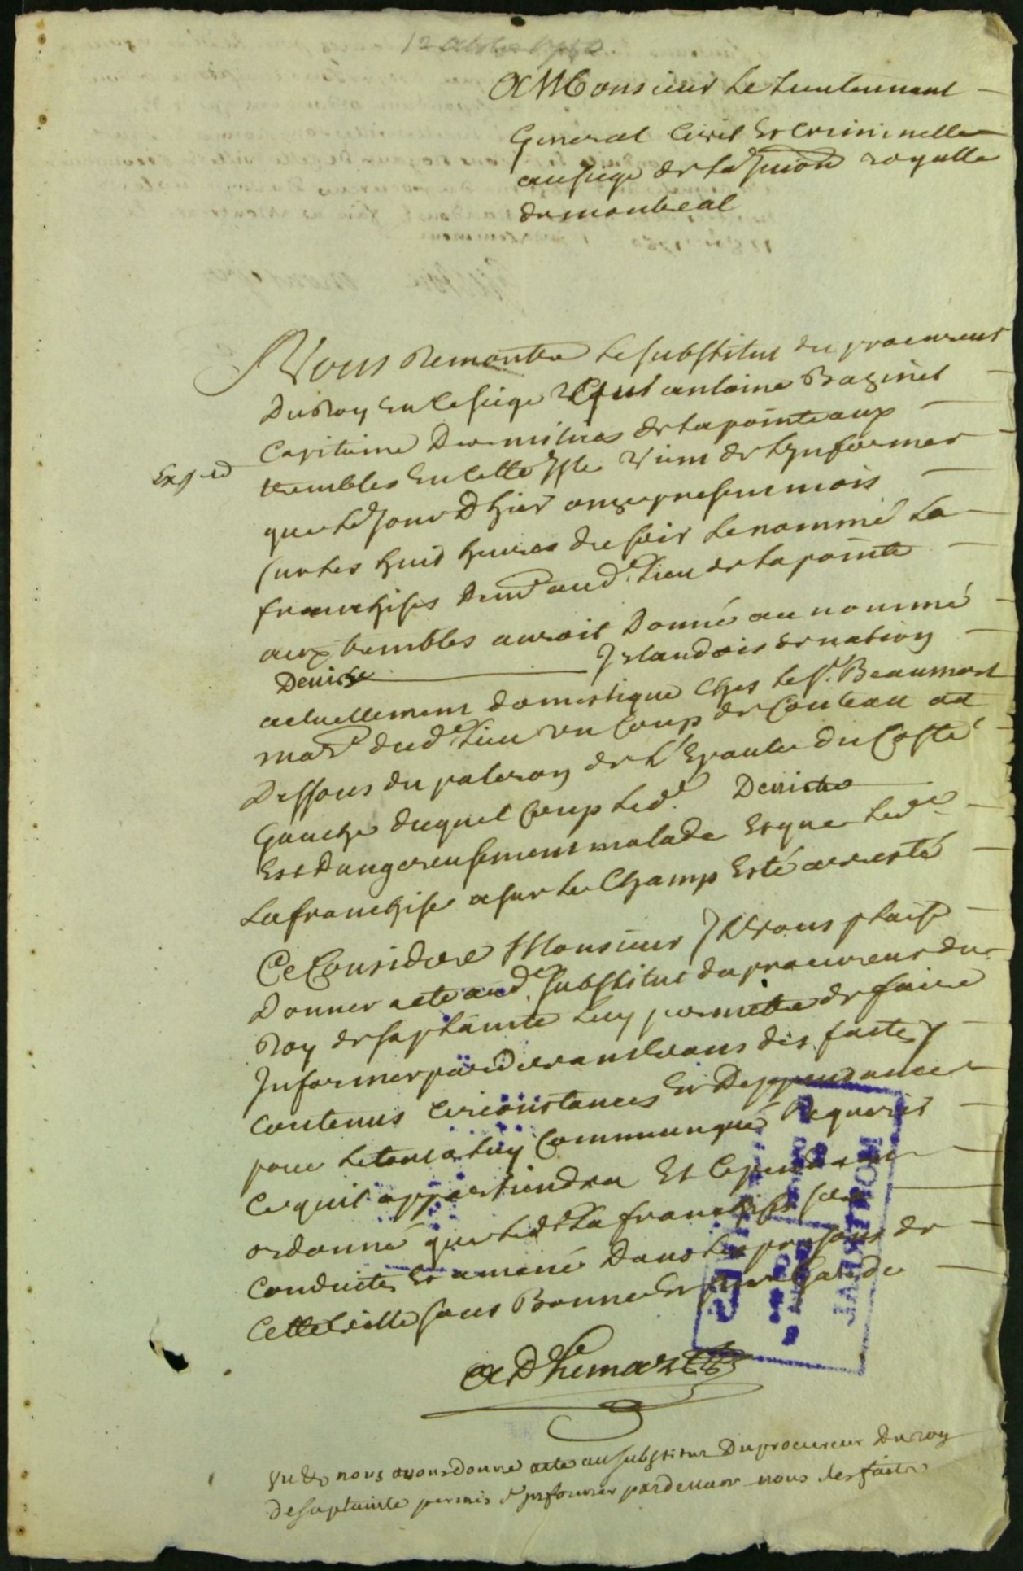 A Monsieur Le Lieutennant
General Civil Et Criminelle
au siege de la Jurion royalle
de montreal
Vous Remontre Le substitut du procureur
Du Roy En ce siege Que antoine Bazinet
Capitaine De milices de la pointe aux
trembles En Cette Isle Vient de L'ynformer
que Le Jour D'hier onze present mois
sur Les huit heures du soir Le nommé La
franchise Demt aud. Lieu de la pointe
aux trembles auroit Donné au nommé
Denise Irlandois de nation
actuellement domestique Ches le Sr. Beaumont
mard. dud. Lieu un Coup de Couteau au
Dessous du paleron de L'Epaule du Costé
Gauche duquel Coup Led. Denise
Est Dangereusement malade Et que Led.
Lafranchise a sur Le Champ Esté arresté
Ce Consideré Monsieur Il Vous plaise
Donner acte aud. substitut du procureur du
Roy de sa plainte Luy permettre de faire
Informer pardevant Vous des faits y
contenus circonstances Et Deppendances
pour Le tout a Luy Communiqué Requerir
Ce quil appartiendra Et Cependant
ordonné que Led. La franchise sera
Conduite Et amené Dans Les prisons de
Cette Ville sous Bonne Et sure Garde
Adhemar
Vu &c nous avons donné acte au substitut Du procureur Du roy
De sa plainte permis d'informer pardevant nous des faits
MONTREAL